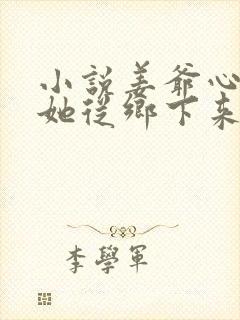 小説姜爺心
她從鄉下來
李學軍